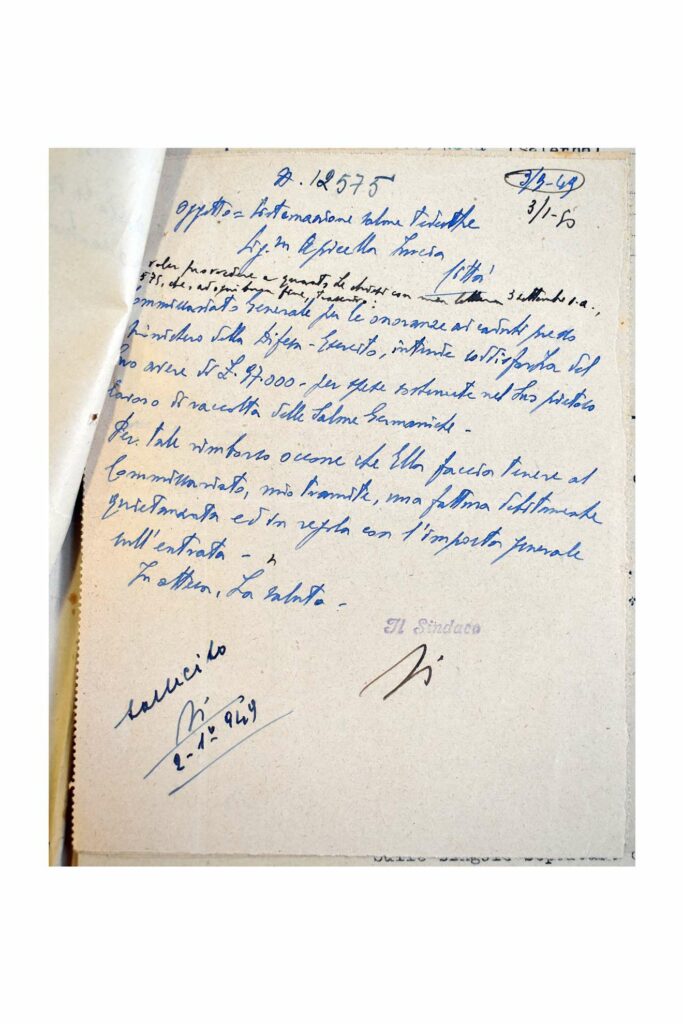 N. 12575
3/9-49
3/1-50
Oggetto = Sistemazione salme tedesche
Sig.ra Apicella Lucia
Città
voler provvedere a quanto Le chiesi con mia lettera 3 settembre s.a.,
575, che, ad ogni buon fine, trascrivo:
Commissariato Generale per le onoranze ai caduti presso
Ministero della Difesa-Esercito, intende soddisfarla del
Suo avere di L. 97.000 - per spese sostenute nel Suo pietoso
lavoro di raccolta delle Salme Germaniche -
Per tale rimborso occorre che Ella faccia tenere al
Commissariato, mio tramite, una fattura debitamente
quietanzata ed in regola con l'imposta generale
sull'entrata -
In attesa, La saluto -
Il Sindaco
sollecito
2-1° 949
sulle singole sepolture